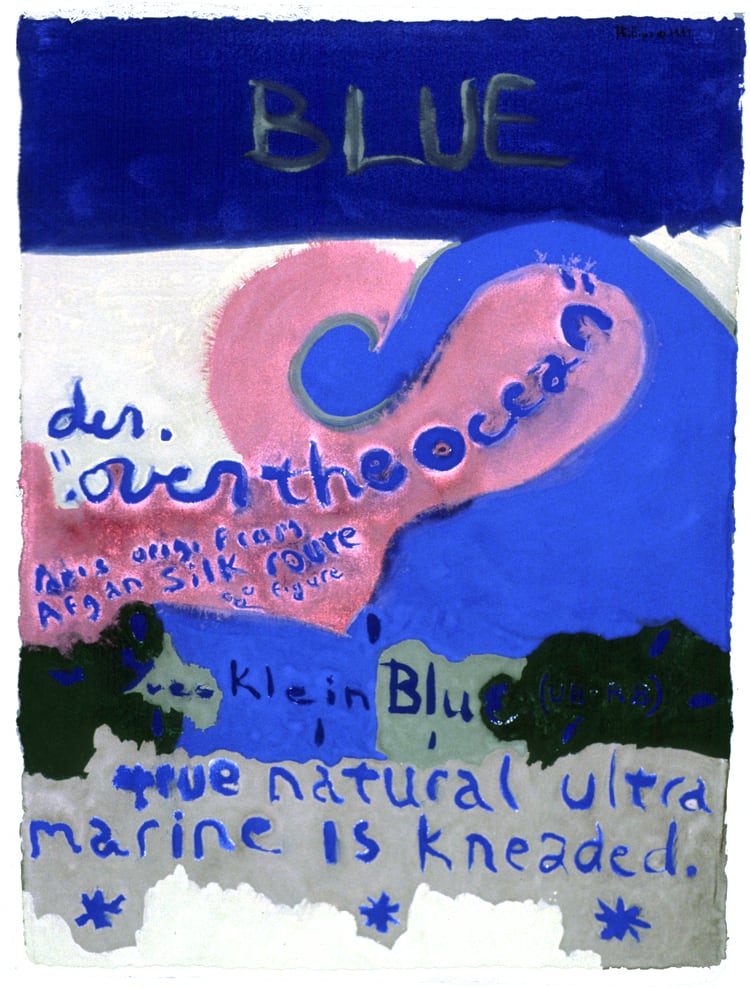 BLUE
der.
"over the ocean"
from
Afgan Silk route
figure
Yves Klein Blue (UB-RB)
true natural ultra
marine is kneaded.